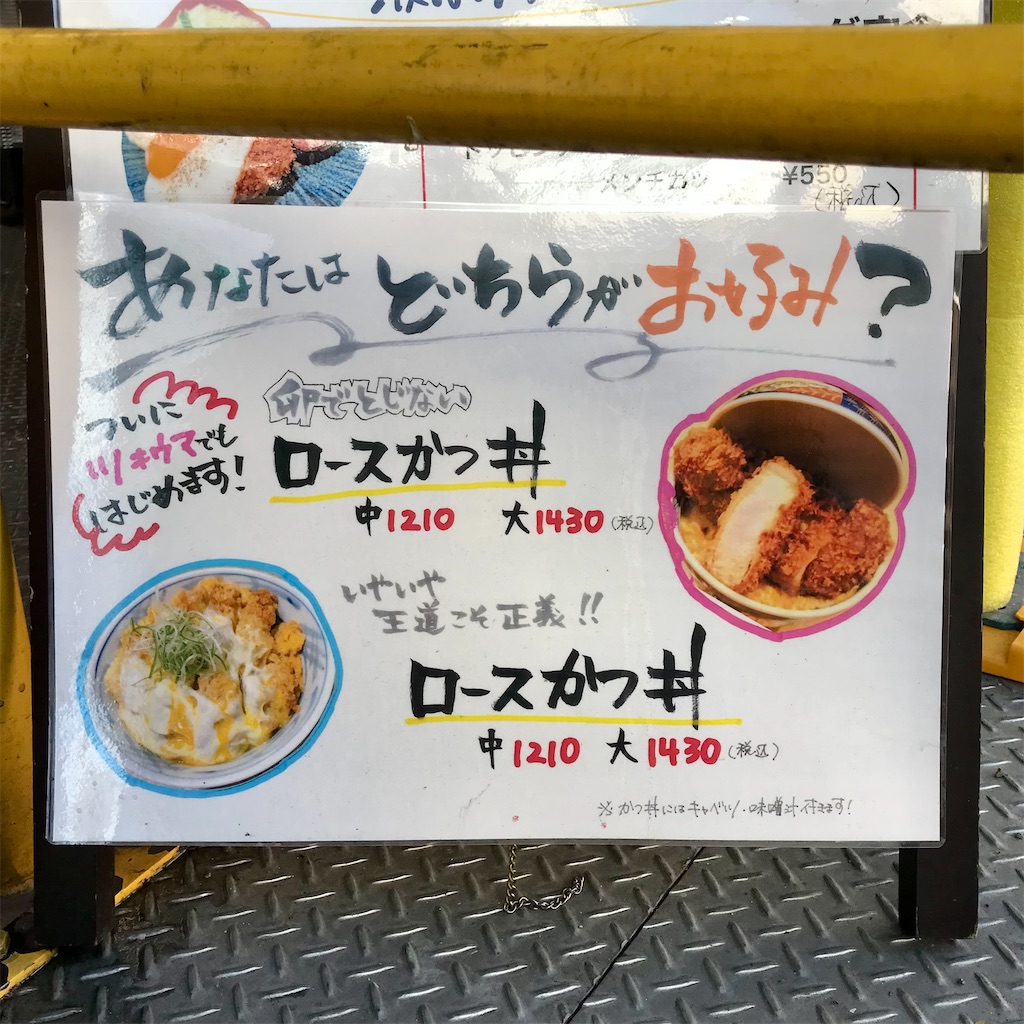 メンチカツ
¥550
(税込)
あなたは どちらが お好み?
ついに
川キウマでも
はじめます!
卵でとじない
ロースかつ丼
中1210 大1430(税込)
いやいや
王道こそ正義!!
ロースかつ丼
中1210 大1430(税込)
※かつ丼にはキャベツ・味噌汁付きます!